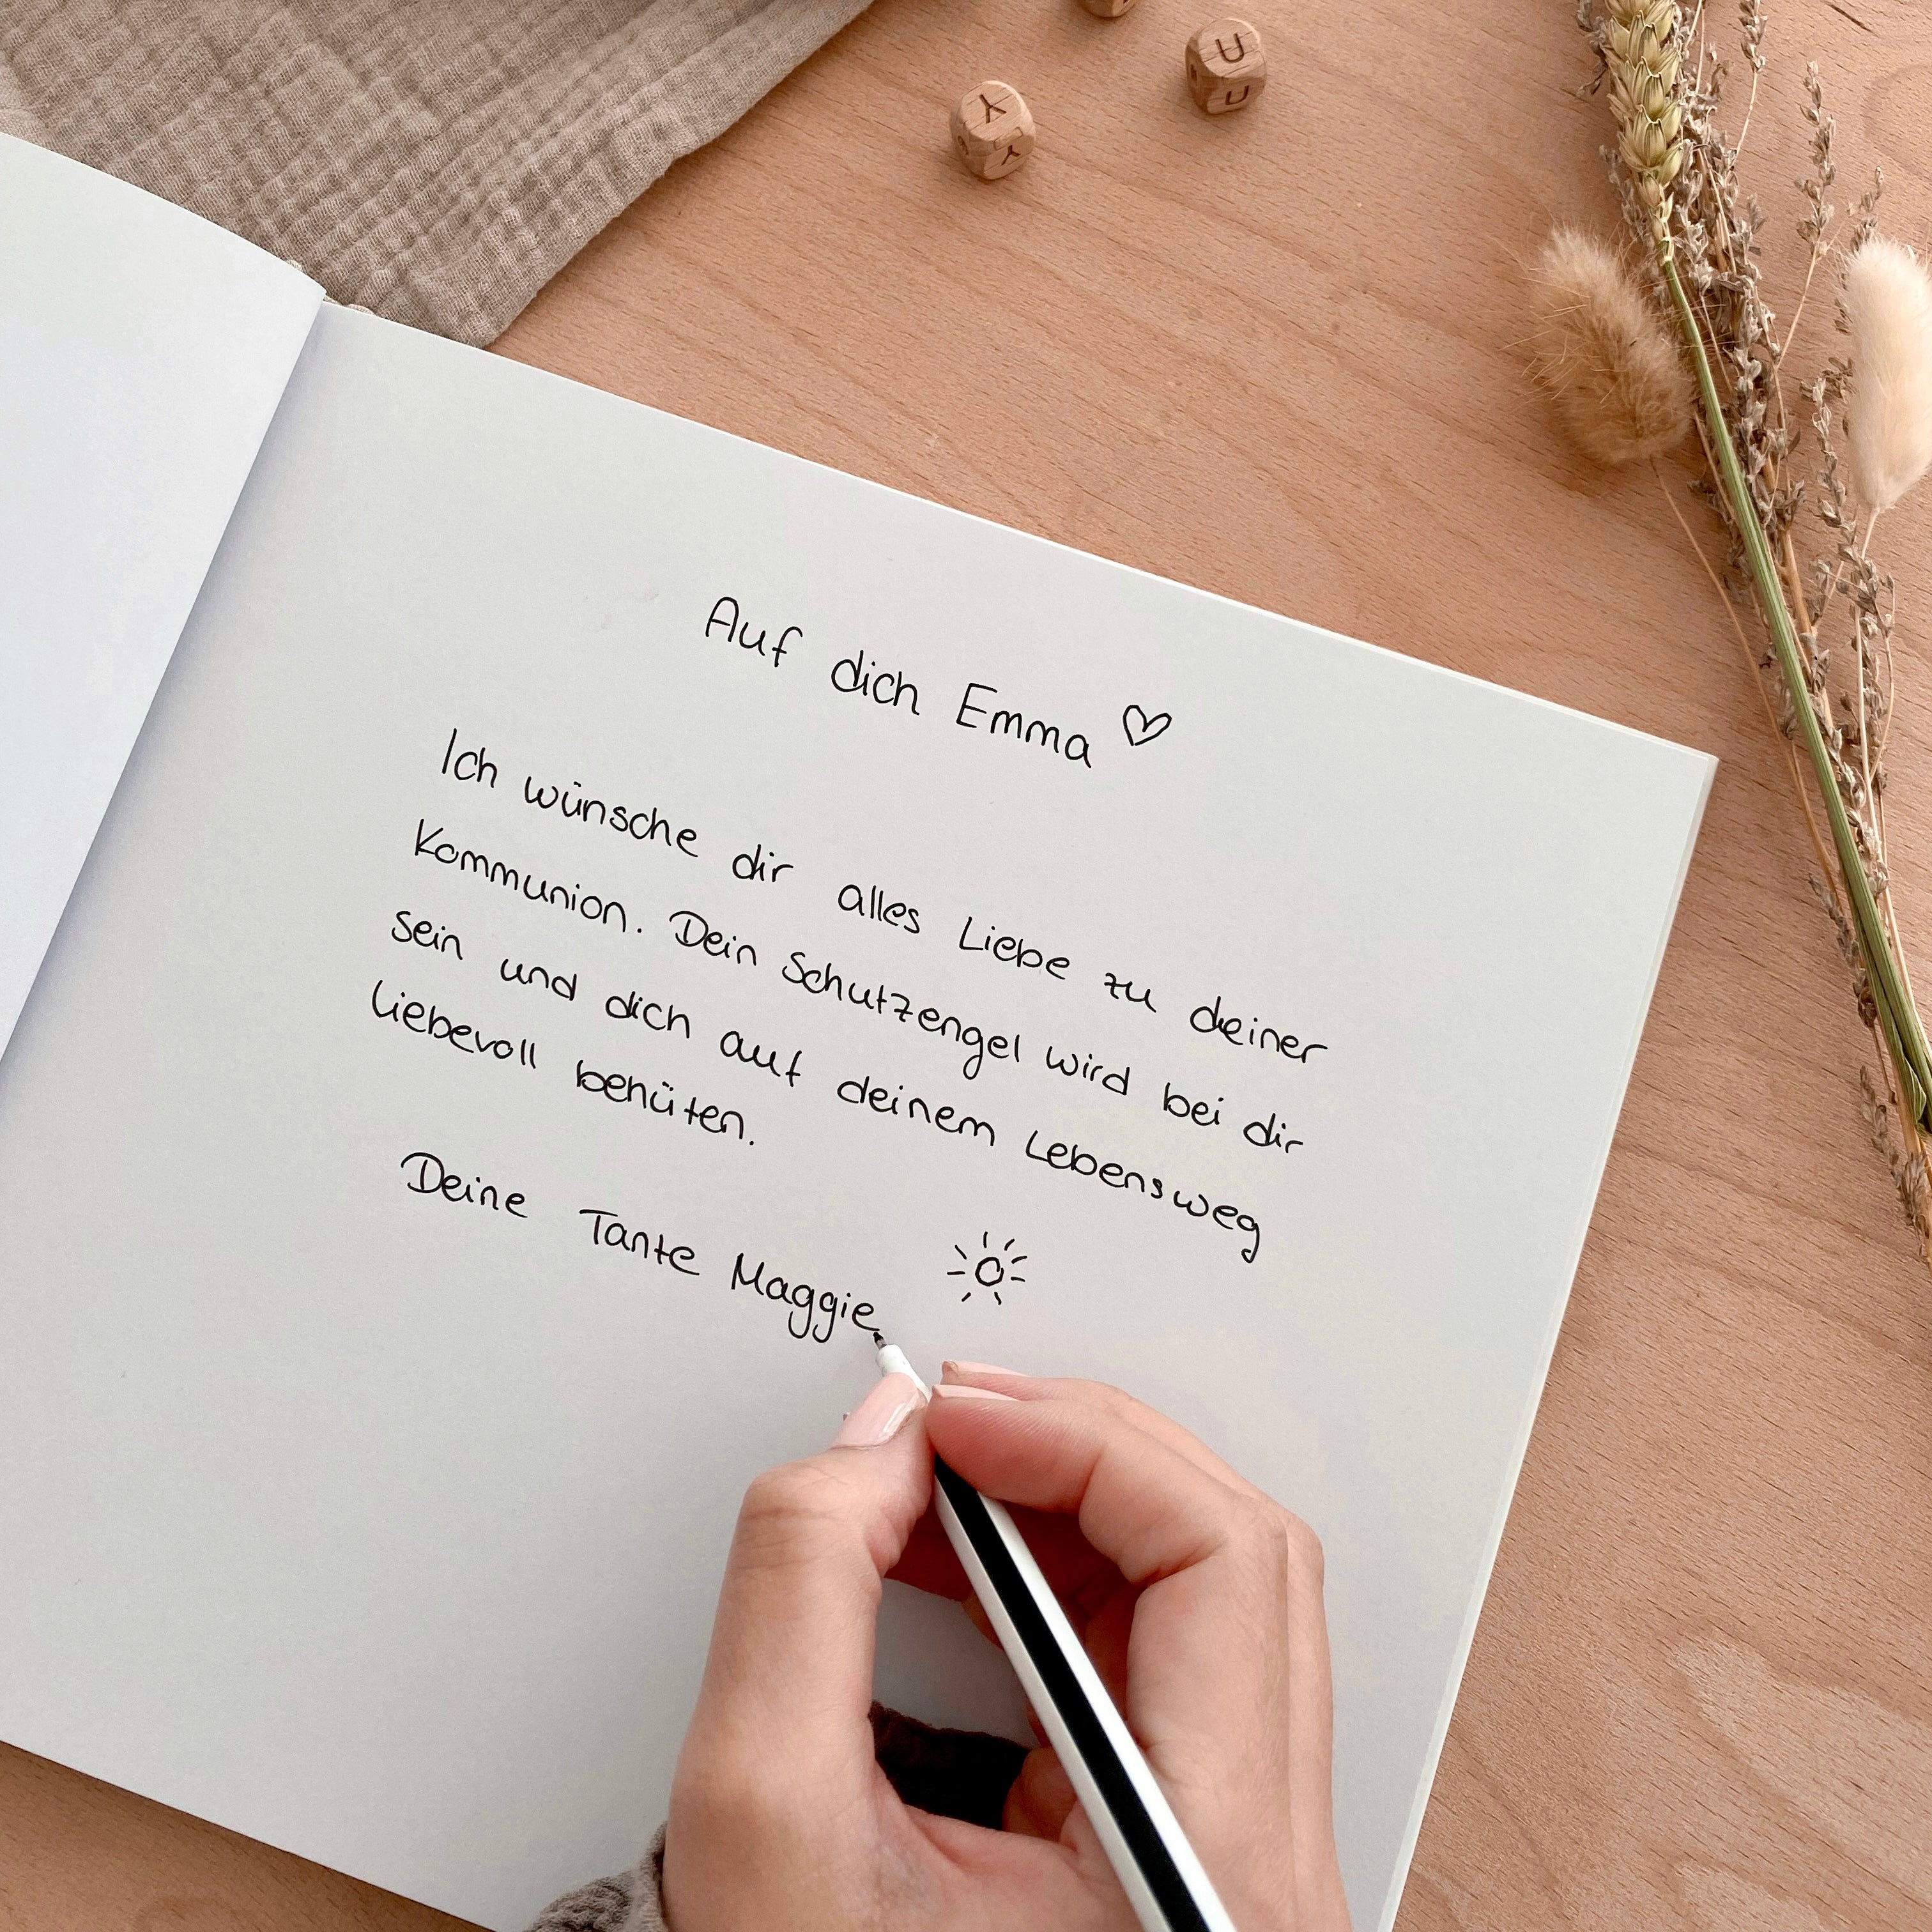 Y
Y
U
U
Auf dich Emma ♡
Ich wünsche dir alles Liebe zu deiner
Kommunion. Dein Schutzengel wird bei dir
sein und dich auf deinem Lebensweg
liebevoll behüten.
Deine Tante Maggie